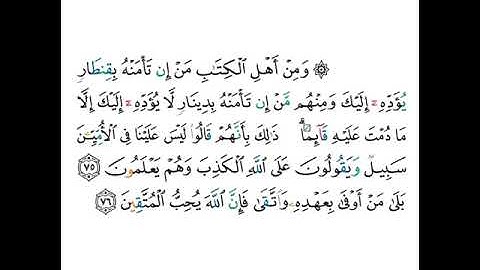 ۞ وَمِنْ أَهْلِ الْكِتَابِ مَنْ إِن تَأْمَنْهُ بِقِنطَارٍ
يُؤَدِّهِ إِلَيْكَ وَمِنْهُم مَّنْ إِن تَأْمَنْهُ بِدِينَارٍ لَّا يُؤَدِّهِ إِلَيْكَ إِلَّا
مَا دُمْتَ عَلَيْهِ قَآئِمًا ۗ ذَٰلِكَ بِأَنَّهُمْ قَالُوا۟ لَيْسَ عَلَيْنَا فِى الْأُمِّيِّـۧنَ
سَبِيلٌ وَيَقُولُونَ عَلَى اللَّهِ الْكَذِبَ وَهُمْ يَعْلَمُونَ ٧٥
بَلَىٰ مَنْ أَوْفَىٰ بِعَهْدِهِۦ وَاتَّقَىٰ فَإِنَّ اللَّهَ يُحِبُّ الْمُتَّقِينَ ٧٦